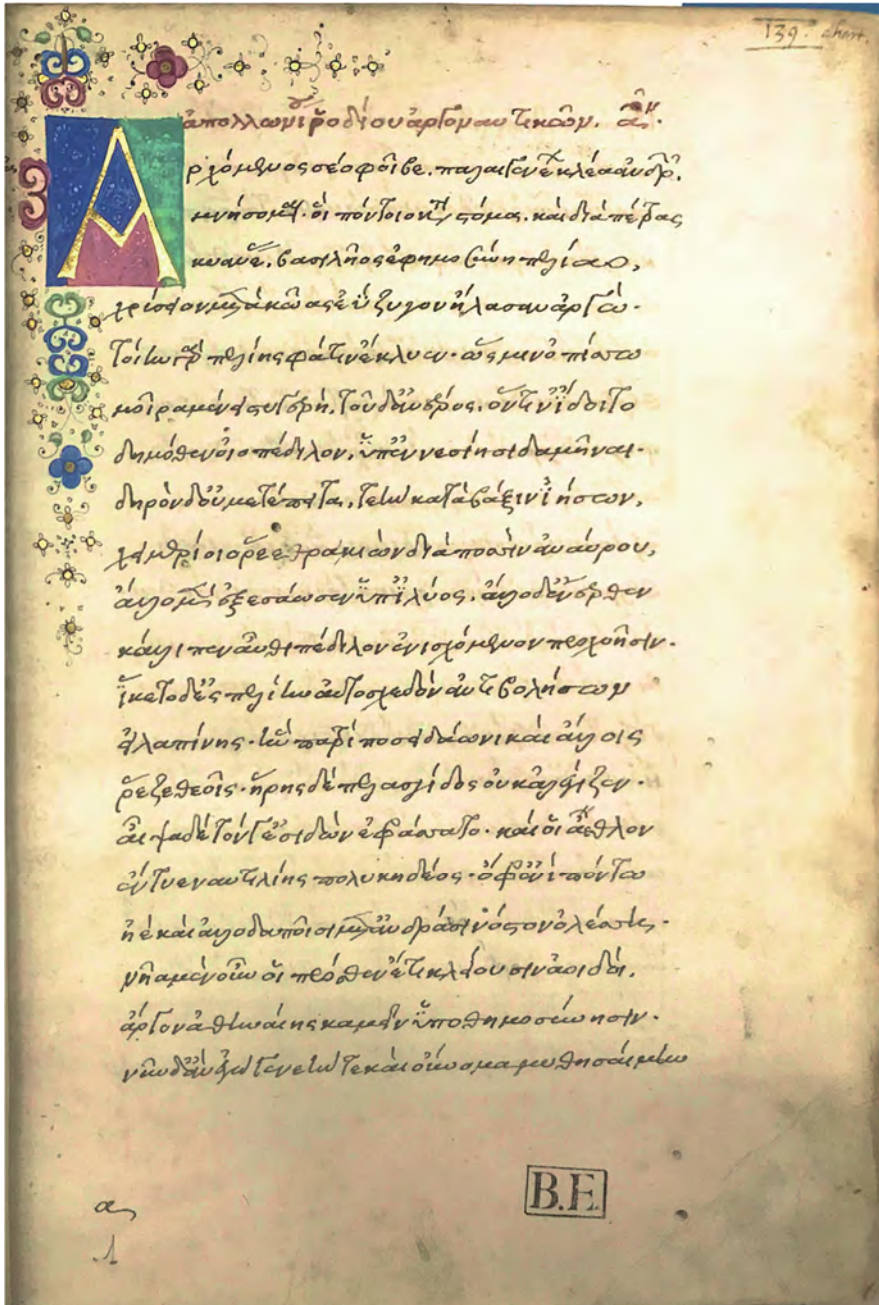 139. chart.
ἀπολλωνίου ῥοδίου ἀργοναυτικῶν. α
Ἀρχόμενος σέο φοῖβε. παλαιγενέων κλέα ἀνδρῶν.
μνήσομαι. οἳ πόντοιο κατὰ στόμα. καὶ διὰ πέτρας
κυανέας. βασιλῆος ἐφημοσύνη πελίαο,
χρύσειον μετὰ κῶας ἐΰζυγον ἤλασαν ἀργώ.
τοίην γὰρ πελίης φάτιν ἔκλυεν. ὥς μιν ὀπίσσω
μοῖρα μένει στυγερή. τοῦδ' ἀνέρος. ὅντιν' ἴδοιτο
δημόθεν οἰοπέδιλον, ὑπ' ἐννεσίησι δαμῆναι.
δηρὸν δ' οὐ μετέπειτα. τεὴν κατὰ βάξιν ἰήσων,
χειμερίοιο ῥέεθρα κιὼν διὰ ποσσὶν ἀναύρου,
ἄλλο μὲν ἐξεσάωσεν ὑπ' ἰλύος. ἄλλο δ' ἔνερθεν
κάλλιπεν αὖθι πέδιλον ἐνισχόμενον προχοῆσιν.
ἵκετο δ' ἐς πελίην αὐτοσχεδὸν ἀντιβολήσων
εἰλαπίνης. ἣν πατρὶ ποσειδάωνι καὶ ἄλλοις
ῥέζε θεοῖς. ἥρης δὲ πελασγίδος οὐκ ἀλέγιζεν.
αἶψα δὲ τόνγ' ἐσιδὼν ἐφράσσατο. καὶ οἱ ἄεθλον
ἔντυεν ναυτιλίης πολυκηδέος. ὄφρ' ἐνὶ πόντω
ἠὲ καὶ ἀλλοδαποῖσι μετ' ἀνδράσι νόστον ὀλέσση.
νῆα μὲν οὖν οἱ πρόσθεν ἔτι κλείουσιν ἀοιδοί.
ἄργον ἀθηναίης καμέειν ὑποθημοσύνησιν.
νῦν δ' ἂν ἐγὼ γενεήν τε καὶ οὔνομα μυθησαίμην
B.F.
α
1